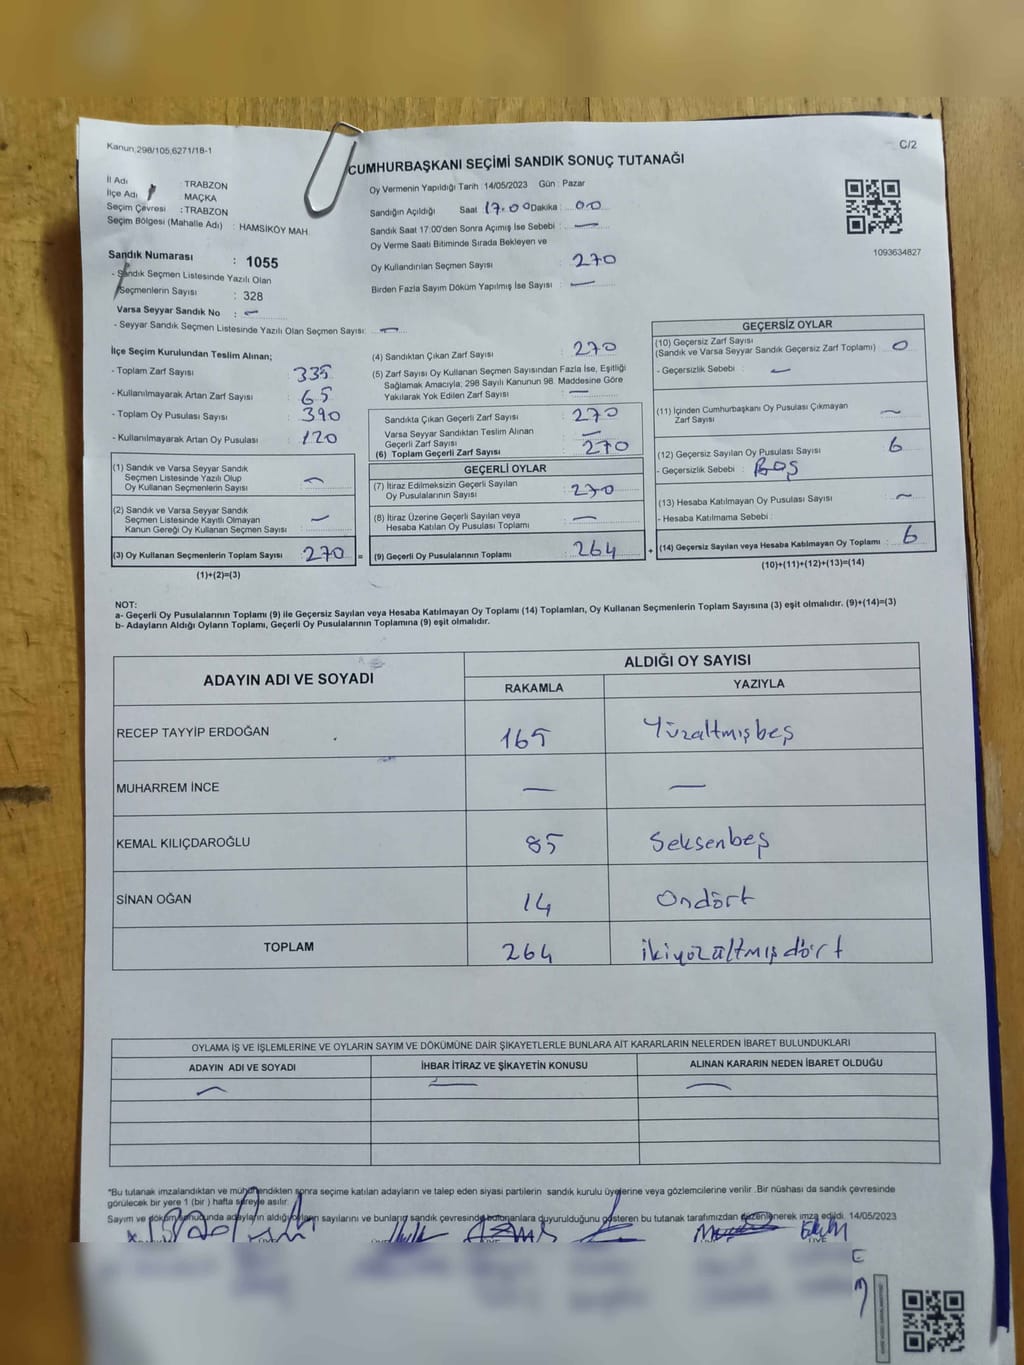 Kanun,298/105,6271/18-1
C/2
CUMHURBAŞKANI SEÇİMİ SANDIK SONUÇ TUTANAĞI
İl Adı TRABZON
İlçe Adı MAÇKA
Seçim Çevresi : TRABZON
Seçim Bölgesi (Mahalle Adı) : HAMSİKÖY MAH.
Sandık Numarası : 1055
- Sandık Seçmen Listesinde Yazılı Olan
Seçmenlerin Sayısı : 328
Varsa Seyyar Sandık No : —
- Seyyar Sandık Seçmen Listesinde Yazılı Olan Seçmen Sayısı: —
Oy Vermenin Yapıldığı Tarih :14/05/2023 Gün : Pazar
Sandığın Açıldığı Saat 17.00 Dakika : 00
Sandık Saat 17:00'den Sonra Açımış İse Sebebi : —
Oy Verme Saati Bitiminde Sırada Bekleyen ve
Oy Kullandırılan Seçmen Sayısı 270
Birden Fazla Sayım Döküm Yapılmış İse Sayısı : —
1093634827
İlçe Seçim Kurulundan Teslim Alınan;
- Toplam Zarf Sayısı : 335
- Kullanılmayarak Artan Zarf Sayısı : 65
- Toplam Oy Pusulası Sayısı : 390
- Kullanılmayarak Artan Oy Pusulası : 120
(1) Sandık ve Varsa Seyyar Sandık
Seçmen Listesinde Yazılı Olup
Oy Kullanan Seçmenlerin Sayısı : —
(2) Sandık ve Varsa Seyyar Sandık
Seçmen Listesinde Kayıtlı Olmayan
Kanun Gereği Oy Kullanan Seçmen Sayısı : —
(3) Oy Kullanan Seçmenlerin Toplam Sayısı : 270 =
(1)+(2)=(3)
(4) Sandıktan Çıkan Zarf Sayısı : 270
(5) Zarf Sayısı Oy Kullanan Seçmen Sayısından Fazla İse, Eşitliği
Sağlamak Amacıyla, 298 Sayılı Kanunun 98. Maddesine Göre
Yakılarak Yok Edilen Zarf Sayısı : —
Sandıkta Çıkan Geçerli Zarf Sayısı : 270
Varsa Seyyar Sandıktan Teslim Alınan
Geçerli Zarf Sayısı : —
(6) Toplam Geçerli Zarf Sayısı : 270
GEÇERLİ OYLAR
(7) İtiraz Edilmeksizin Geçerli Sayılan
Oy Pusulalarının Sayısı : 270
(8) İtiraz Üzerine Geçerli Sayılan veya
Hesaba Katılan Oy Pusulası Toplamı : —
(9) Geçerli Oy Pusulalarının Toplamı : 264 +
GEÇERSİZ OYLAR
(10) Geçersiz Zarf Sayısı
(Sandık ve Varsa Seyyar Sandık Geçersiz Zarf Toplamı) : 0
- Geçersizlik Sebebi : —
(11) İçinden Cumhurbaşkanı Oy Pusulası Çıkmayan
Zarf Sayısı : —
(12) Geçersiz Sayılan Oy Pusulası Sayısı : 6
- Geçersizlik Sebebi : Boş
(13) Hesaba Katılmayan Oy Pusulası Sayısı : —
- Hesaba Katılmama Sebebi :
(14) Geçersiz Sayılan veya Hesaba Katılmayan Oy Toplamı : 6
(10)+(11)+(12)+(13)=(14)
NOT:
a- Geçerli Oy Pusulalarının Toplamı (9) ile Geçersiz Sayılan veya Hesaba Katılmayan Oy Toplamı (14) Toplamları, Oy Kullanan Seçmenlerin Toplam Sayısına (3) eşit olmalıdır. (9)+(14)=(3)
b- Adayların Aldığı Oyların Toplamı, Geçerli Oy Pusulalarının Toplamına (9) eşit olmalıdır.
ADAYIN ADI VE SOYADI
ALDIĞI OY SAYISI
RAKAMLA YAZIYLA
RECEP TAYYİP ERDOĞAN 165 Yüzaltmışbeş
MUHARREM İNCE — —
KEMAL KILIÇDAROĞLU 85 Seksenbeş
SİNAN OĞAN 14 Ondört
TOPLAM 264 ikiyüzaltmışdört
OYLAMA İŞ VE İŞLEMLERİNE VE OYLARIN SAYIM VE DÖKÜMÜNE DAİR ŞİKAYETLERLE BUNLARA AİT KARARLARIN NELERDEN İBARET BULUNDUKLARI
ADAYIN ADI VE SOYADI İHBAR İTİRAZ VE ŞİKAYETİN KONUSU ALINAN KARARIN NEDEN İBARET OLDUĞU
— — —
*Bu tutanak imzalandıktan ve mühürlendikten sonra seçime katılan adayların ve talep eden siyasi partilerin sandık kurulu üyelerine veya gözlemcilerine verilir .Bir nüshası da sandık çevresinde
görülecek bir yere 1 (bir ) hafta süreyle asılır.
Sayım ve döküm sonucunda adayların aldığı oyların sayılarını ve bunların sandık çevresinde bulunanlara duyurulduğunu gösteren bu tutanak tarafımızdan düzenlenerek imza edildi. 14/05/2023